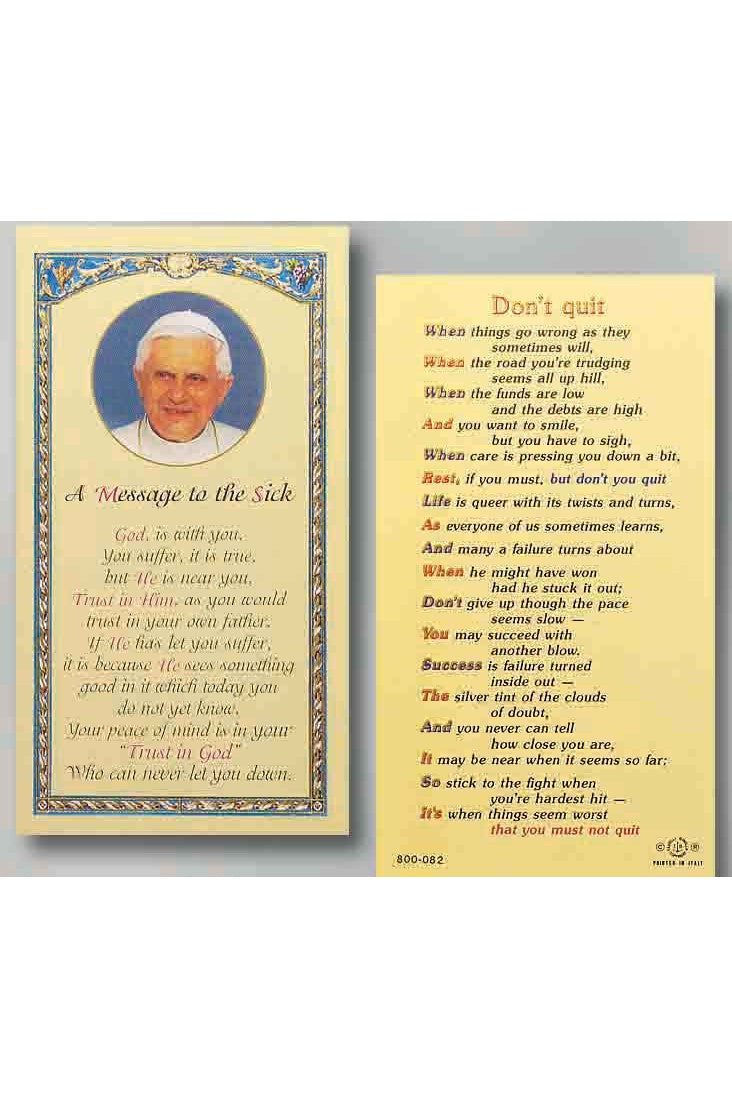 A Message to the Sick
God, is with you.
You suffer, it is true,
but He is near you,
Trust in Him, as you would
trust in your own father.
If He has let you suffer,
it is because He sees something
good in it which today you
do not yet know.
Your peace of mind is in your
"Trust in God"
Who can never let you down.
Don't quit
When things go wrong as they
sometimes will,
When the road you're trudging
seems all up hill,
When the funds are low
and the debts are high
And you want to smile,
but you have to sigh,
When care is pressing you down a bit,
Rest, if you must, but don't you quit
Life is queer with its twists and turns,
As everyone of us sometimes learns,
And many a failure turns about
When he might have won
had he stuck it out;
Don't give up though the pace
seems slow —
You may succeed with
another blow.
Success is failure turned
inside out —
The silver tint of the clouds
of doubt,
And you never can tell
how close you are,
It may be near when it seems so far:
So stick to the fight when
you're hardest hit —
It's when things seem worst
that you must not quit
800-082
© ®
PRINTED IN ITALY